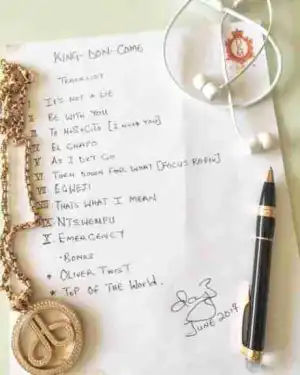 KING-DON-COME
TRACKLIST
I IT'S NOT A LIE
II BE WITH YOU
III TE NECESITO [I NEED YOU]
EL CHAPO
V AS I DEY GO
VI TURN DOWN FOR WHAT
VII EGWEJI
VIII THATS WHAT I MEAN
IX NTSWEMPU
X EMERGENCY
- BONUS
* OLIVER TWIST
* TOP OF THE WORLD.
JUNE 2017